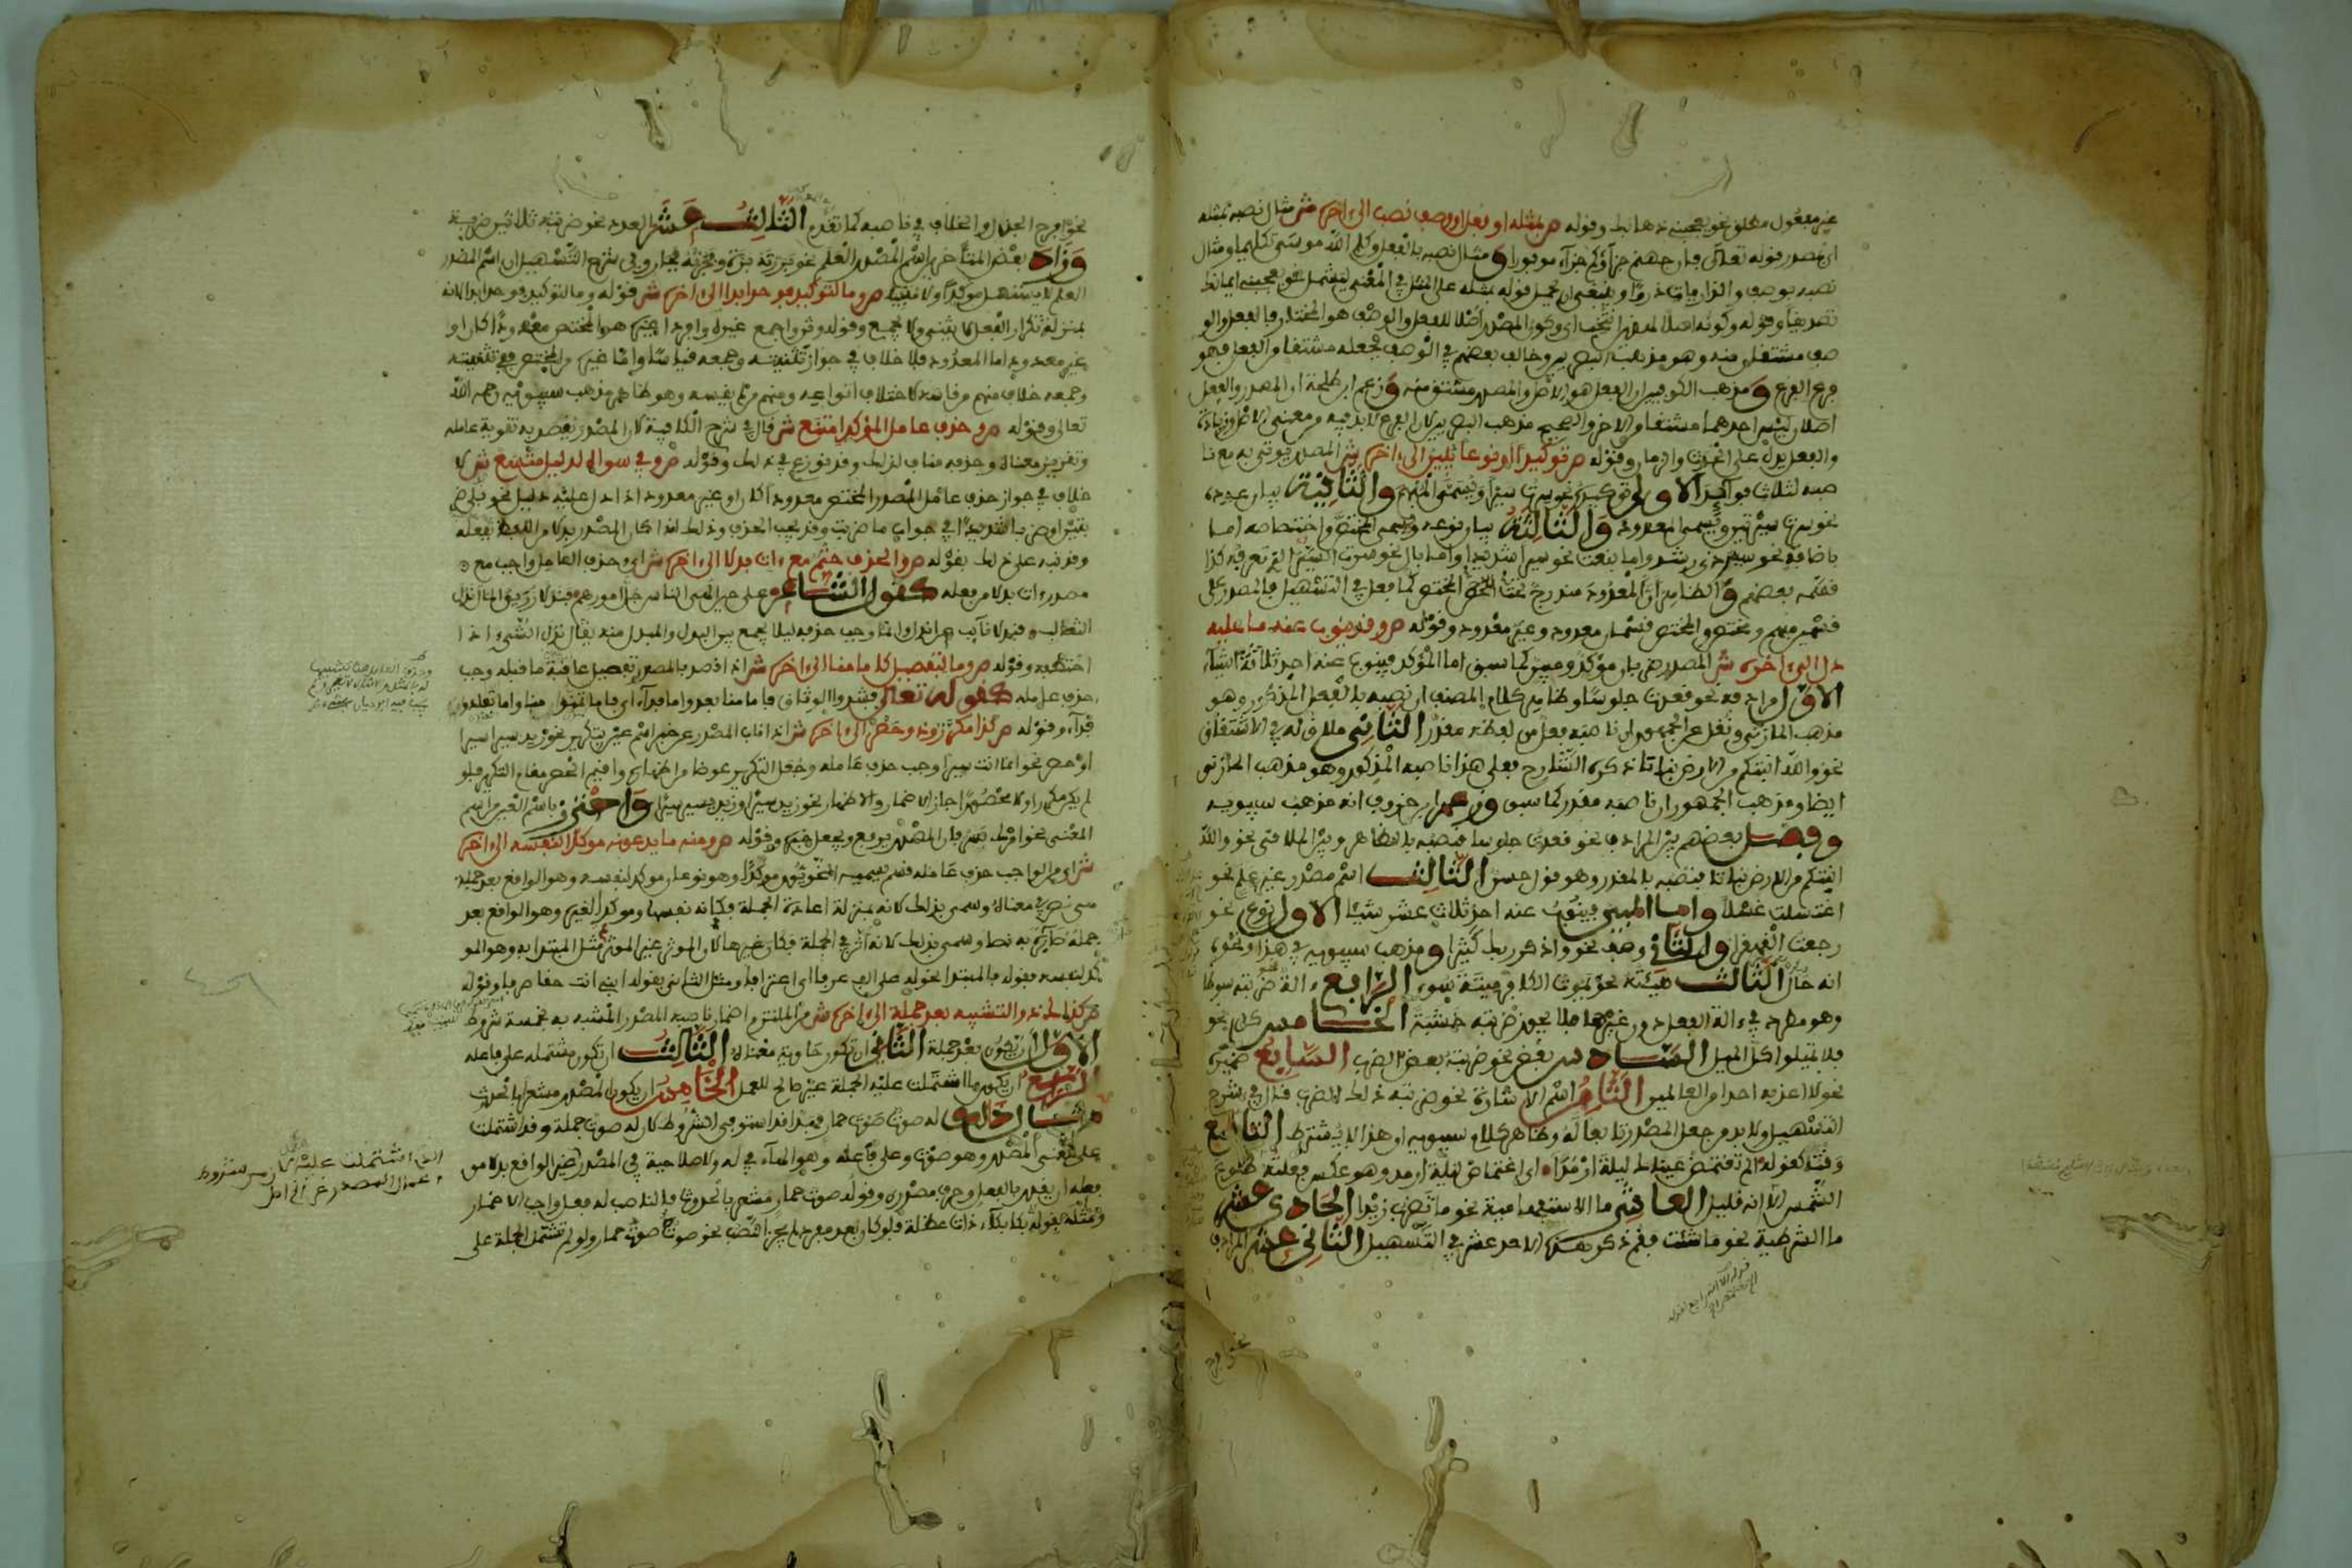 غير مفعول مطلق نحو يعجبني ذهابك وقوله ص بمثله او فعل او وصف نصب الى اخره ش مثال نصبه بمثله
اي بمصدر قوله تعالى فان جهنم جزاؤكم جزاء موفورا ومثال نصبه بالفعل وكلم الله موسى تكليما ومثال
نصبه بوصف والذاريات ذروا وينبغي ان يحمل قوله بمثله على المثل في المعنى ليشمل نحو يعجبني ايمانك
تصديقا وقوله وكونه اصلا لهذين انتخب اي وكون المصدر اصلا للفعل والوصف هو المختار فالفعل والو
صف مشتقان منه وهو مذهب البصريين وخالف بعضهم في الوصف فجعله مشتقا من الفعل فهو
فرع الفرع ومذهب الكوفيين ان الفعل هو الاصل والمصدر مشتق منه وزعم ابن طلحة ان المصدر والفعل
اصلان ليس احدهما مشتقا من الاخر والصحيح مذهب البصريين لان الفرع لا بد فيه من معنى الاصل وزيادة
والفعل يدل على الحدث والزمان وقوله ص توكيدا او نوعا يبين الى اخره ش المصدر يوتى به مع نا
صبه لثلاث فوائد الاولى توكيد نحو سرت سيرا ويسمى المبهم والثانية بيان عدد
نحو سرت سيرتين ويسمى المعدود والثالثة بيان نوعه ويسمى المختص واختصاصه اما
باضافة نحو سير ذي رشد واما بنعت نحو سيرا شديدا واما بال نحو سرت السير الذي تعرفه كذا
قسمه بعضهم والظاهر ان المعدود مندرج تحت المختص كما فعل في التسهيل فالمصدر على
قسمين مبهم ومختص والمختص قسمان معدود وغير معدود وقوله ص وقد ينوب عنه ما عليه
دل الى اخره ش المصدر ضربان موكد ومبين كما سبق اما المؤكد فينوب عنه احد ثلاثة اشياء
الاول مرادفه نحو قعدت جلوسا وظاهر كلام المصنف ان نصبه بالفعل المذكور وهو
مذهب المازني ونقل عن الجمهور ان ناصبه فعل من لفظه مقدر الثاني ملاق له في الاشتقاق
نحو والله انبتكم من الارض نباتا ذكره الشارح فعلى هذا ناصبه المذكور وهو مذهب المازني
ايضا ومذهب الجمهور ان ناصبه مقدر كما سبق وزعم ابن خروف انه مذهب سيبويه
وفصل بعضهم بين المرادف نحو قعدت جلوسا فنصبه بالظاهر وبين الملاقي نحو والله
انبتكم من الارض نباتا فنصبه بالمقدر وهو قول حسن الثالث اسم مصدر غير علم نحو
اغتسلت غسلا واما المبين فينوب عنه احد ثلاث عشر شيئا الاول نوع نحو
رجعت القهقرى والثاني وصف نحو واذكر ربك كثيرا ومذهب سيبويه في هذا ونحوه
انه حال الثالث هيئته نحو يموت الكافر ميتة سوء الرابع الة نحو ضربته سوطا
وهو مطرد في الة الفعل دون غيرها فلا يجوز ضربته خشبة الخامس كل نحو
فلا تميلوا كل الميل السادس بعض نحو ضربته بعض الضرب السابع ضمير
نحو لا اعذبه احدا من العالمين الثامن اسم الاشارة نحو ضربته ذلك الضرب قال في شرح
التسهيل ولا بد من جعل المصدر تابعا له وظاهر كلام سيبويه ان هذا لا يشترط التاسع
وقته كقوله الم تغتمض عيناك ليلة ارمدا اي اغتماض ليلة ارمد وهو عكس فعلته طلوع
الشمس الا انه قليل العاشر ما الاستفهامية نحو ما تضرب زيدا الحادي عشر
ما الشرطية نحو ما شئت فقم ذكر هذا الاحد عشر في التسهيل الثاني عشر المرادف
نحو افرح الجذل والخلاف في ناصبه كما تقدم الثالث عشر العدد نحو ضربته ثلاثين ضربة
وزاد بعض المتاخرين اسم المصدر العلم نحو بررته برة وفجرته فجار وفي شرح التسهيل ان اسم المصدر
العلم لا يستعمل موكدا ولا مبينا ص وما لتوكيد فوحد ابدا الى اخره ش قوله وما لتوكيد فوحد ابدا لانه
بمنزلة تكرار الفعل فلا يثنى ولا يجمع وقوله وثن واجمع غيره وافردا يعني هو المختص معدودا كان او
غير معدود اما المعدود فلا خلاف في جواز تثنيته وجمعه قياسا واما غيره من المختص ففي تثنيته
وجمعه خلاف منهم من قاسه لاختلاف انواعه ومنهم من لم يقسه وهو ظاهر مذهب سيبويه رحمه الله
تعالى وقوله ص وحذف عامل المؤكد امتنع ش قال في شرح الكافية لان المصدر يقصد به تقوية عامله
وتقرير معناه وحذفه مناف لذلك وقد نوزع في ذلك وقوله ص وفي سواه لدليل متسع ش لا
خلاف في جواز حذف عامل المصدر المختص معدودا كان او غير معدود اذا دل عليه دليل نحو بلى ضر
بتين او ضربا شديدا في جواب ما ضربت وقد يجب الحذف وذلك اذا كان المصدر بدلا من اللفظ بفعله
وقد نبه على ذلك بقوله ص والحذف حتم مع ات بدلا الى اخره ش اي وحذف العامل واجب مع
مصدر ات بدلا من فعله كقول الشاعر على حين الهى الناس جل امورهم فندلا زريق المال ندل
الثعالب فندلا نائب عن اندل وانما وجب حذفه ليلا يجمع بين البدل والمبدل منه يقال ندل الشيء اذا
اختطفه وقوله ص وما لتفصيل كاما منا الى اخره ش اذا قصد بالمصدر تفصيل عاقبة ما قبله وجب
حذف عامله كقوله تعالى فشدوا الوثاق فاما منا بعد واما فداء اي فاما تمنون منا واما تفادون
فداء وقوله ص كذا مكرر وذو حصر الى اخره ش اذا ناب المصدر عن خبر اسم عين بتكرير نحو زيد سيرا سيرا
او حصر نحو انما انت سيرا وجب حذف عامله وجعل التكرير عوضا من اظهاره واقيم الحصر مقام التكرير فلو
لم يكن مكررا ولا محصورا جاز الاضمار والاظهار نحو زيد سيرا وزيد يسير سيرا واحترز باسم العين من اسم
المعنى نحو امرك سير فان المصدر يرفع ويجعل خبرا وقوله ص ومنه ما يدعونه موكدا لنفسه الى اخره
ش اي من الواجب حذف عامله قسم يسميه النحويون موكدا وهو نوعان موكد لنفسه وهو الواقع بعد جملة
هي نص في معناه وسمي بذلك لانه بمنزلة اعادة الجملة فكانه نفسها وموكد لغيره وهو الواقع بعد
جملة صائرة به نصا وسمي بذلك لانه اثر في الجملة فكان غيرها لان الموثر غير الموثر فيه مثل المبتدا به وهو المو
كد لنفسه بقوله فالمبتدا نحو له علي الف عرفا اي اعترافا ومثل الثاني بقوله ابني انت حقا صرفا وقوله
ص كذاك ذو التشبيه بعد جملة الى اخره ش من الملتزم اضمار ناصبه المصدر المشبه به بخمسة شروط
الاول ان يكون بعد جملة الثاني ان تكون حاوية معناه الثالث ان تكون مشتملة على فاعله
الرابع ان يكون ما اشتملت عليه الجملة غير صالح للعمل الخامس ان يكون المصدر مشعرا بالحدث
مثال ذلك له صوت صوت حمار فهذا قد استوفى الشروط لان له صوت جملة وقد اشتملت
على معنى المصدر وهو صوت وعلى فاعله وهو الهاء في له ولا صلاحية في المصدر لغير الواقع بدلا من
فعله ان يقدر بالفعل وحرف مصدري وقوله صوت حمار مشعر بالحدوث فالناصب له فعل واجب الاضمار
ومثله بقوله بكا بكاء ذات عضلة فلو كان بعد مفرد لم يجز النصب نحو صوته صوت حمار ولو لم تشتمل الجملة على